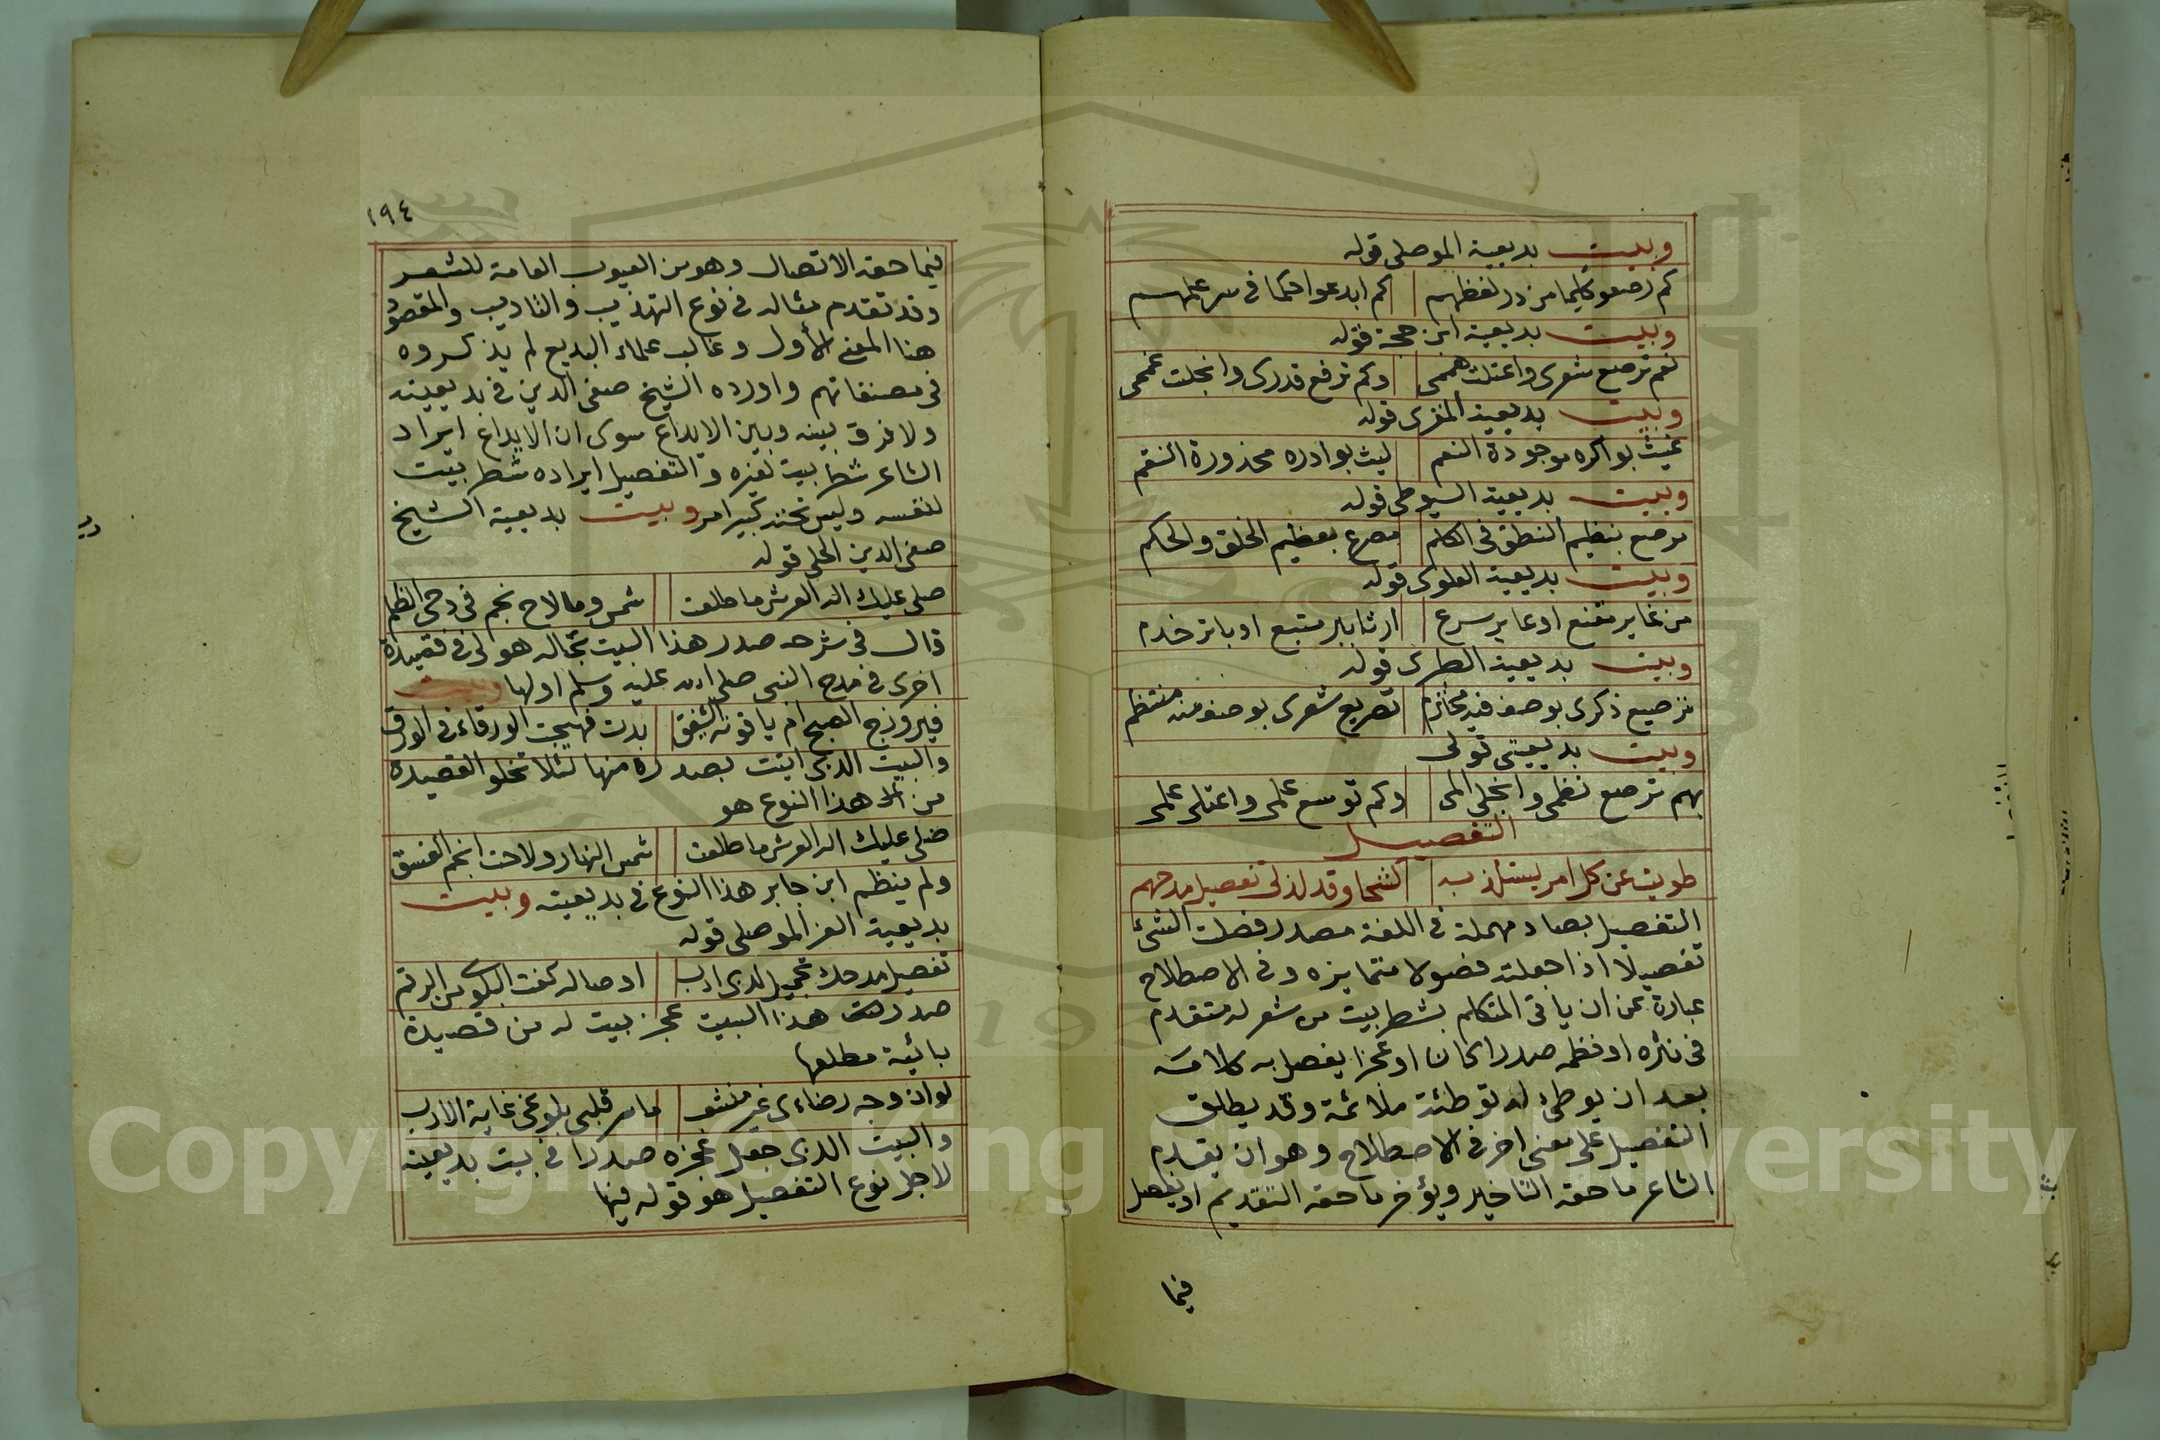 وبيت بديعية الموصلي قوله
كم رصعوا كلما من در لفظهم كم ابدعوا حكما في سر علمهم
وبيت بديعية ابن حجة قوله
نعم ترصع شعري واعتلت هممي وكم ترفع قدري وانجلت غممي
وبيت بديعية المقري قوله
غيث بوادره موجودة النعم ليث بوادره محذورة النقم
وبيت بديعية السيوطي قوله
مرصع بنظيم النطق في الكلم مصرع بعظيم الخلق والحكم
وبيت بديعية العلوي قوله
من غابر مقنع او عابر سرع او ثابر متبع او باتر خدم
وبيت بديعية الطبري قوله
ترصيع ذكري بوصف فيه تصريع شعري بوصف منه منتظم
وبيت بديعيتي قولي
بهم ترصع نظمي وانجلى المي وكم توسع علمي واعتلى علمي
التفصيل
طويت عن كل امر يستلذ به كشحا وقد لذ لي تفصيل مدحهم
التفصيل بصاد مهملة في اللغة مصدر فصلت الشيء
تفصيلا اذا جعلته فصولا متمايزه وفي الاصطلاح
عبارة عن ان ياتي المتكلم بشطر بيت من شعر له متقدم
في نثره او نظمه صدرا كان او عجزا يفصل به كلامه
بعد ان يوطئ له توطئة ملائمة وقد يطلق
التفصيل على معنى اخر في الاصطلاح وهو ان يقدم
الشاعر ما حقه التاخير ويؤخر ما حقه التقديم او يفصل
فيما
١٩٤
فيما حقه الاتصال وهو من العيوب العامة للشعر
وقد تقدم مثاله في نوع التهذيب والتاديب والمقصود
هنا المعنى الأول وغالب علماء البديع لم يذكروه
في مصنفاتهم واورده الشيخ صفي الدين في بديعيته
ولا فرق بينه وبين الايداع سوى ان الايداع ايراد
الشاعر شطر بيت لغيره والتفصيل ايراده شطر بيت
لنفسه وليس تحته كبير امر وبيت بديعية الشيخ
صفي الدين الحلي قوله
صلى عليك اله العرش ما طلعت شمس وما لاح نجم في دجى الظلم
قال في شرحه صدر هذا البيت بحاله هو لي في قصيدة
اخرى في مدح النبي صلى الله عليه وسلم اولها
فيروزج الصبح ام ياقوتة الشفق بدت فهيجت الورقاء في الورق
والبيت الذي اتيت بصدره منها لئلا تخلو القصيدة
من هذا النوع هو
صلى عليك اله العرش ما طلعت شمس النهار ولاحت انجم الغسق
ولم ينظم ابن جابر هذا النوع في بديعيته وبيت
بديعية العز الموصلي قوله
تفصيل مدحك تجميل لذي ادب اوصاله الرقم
صدر هذا البيت عجز بيت له من قصيدة
بائية مطلعها
لو ان وجه رضاءي غير ما مر قلبي غاية الادب
والبيت الذي جعل عجزه صدرا في بيت بديعيته
لاجل نوع التفصيل هو قوله فيها
Copyright © King Saud University